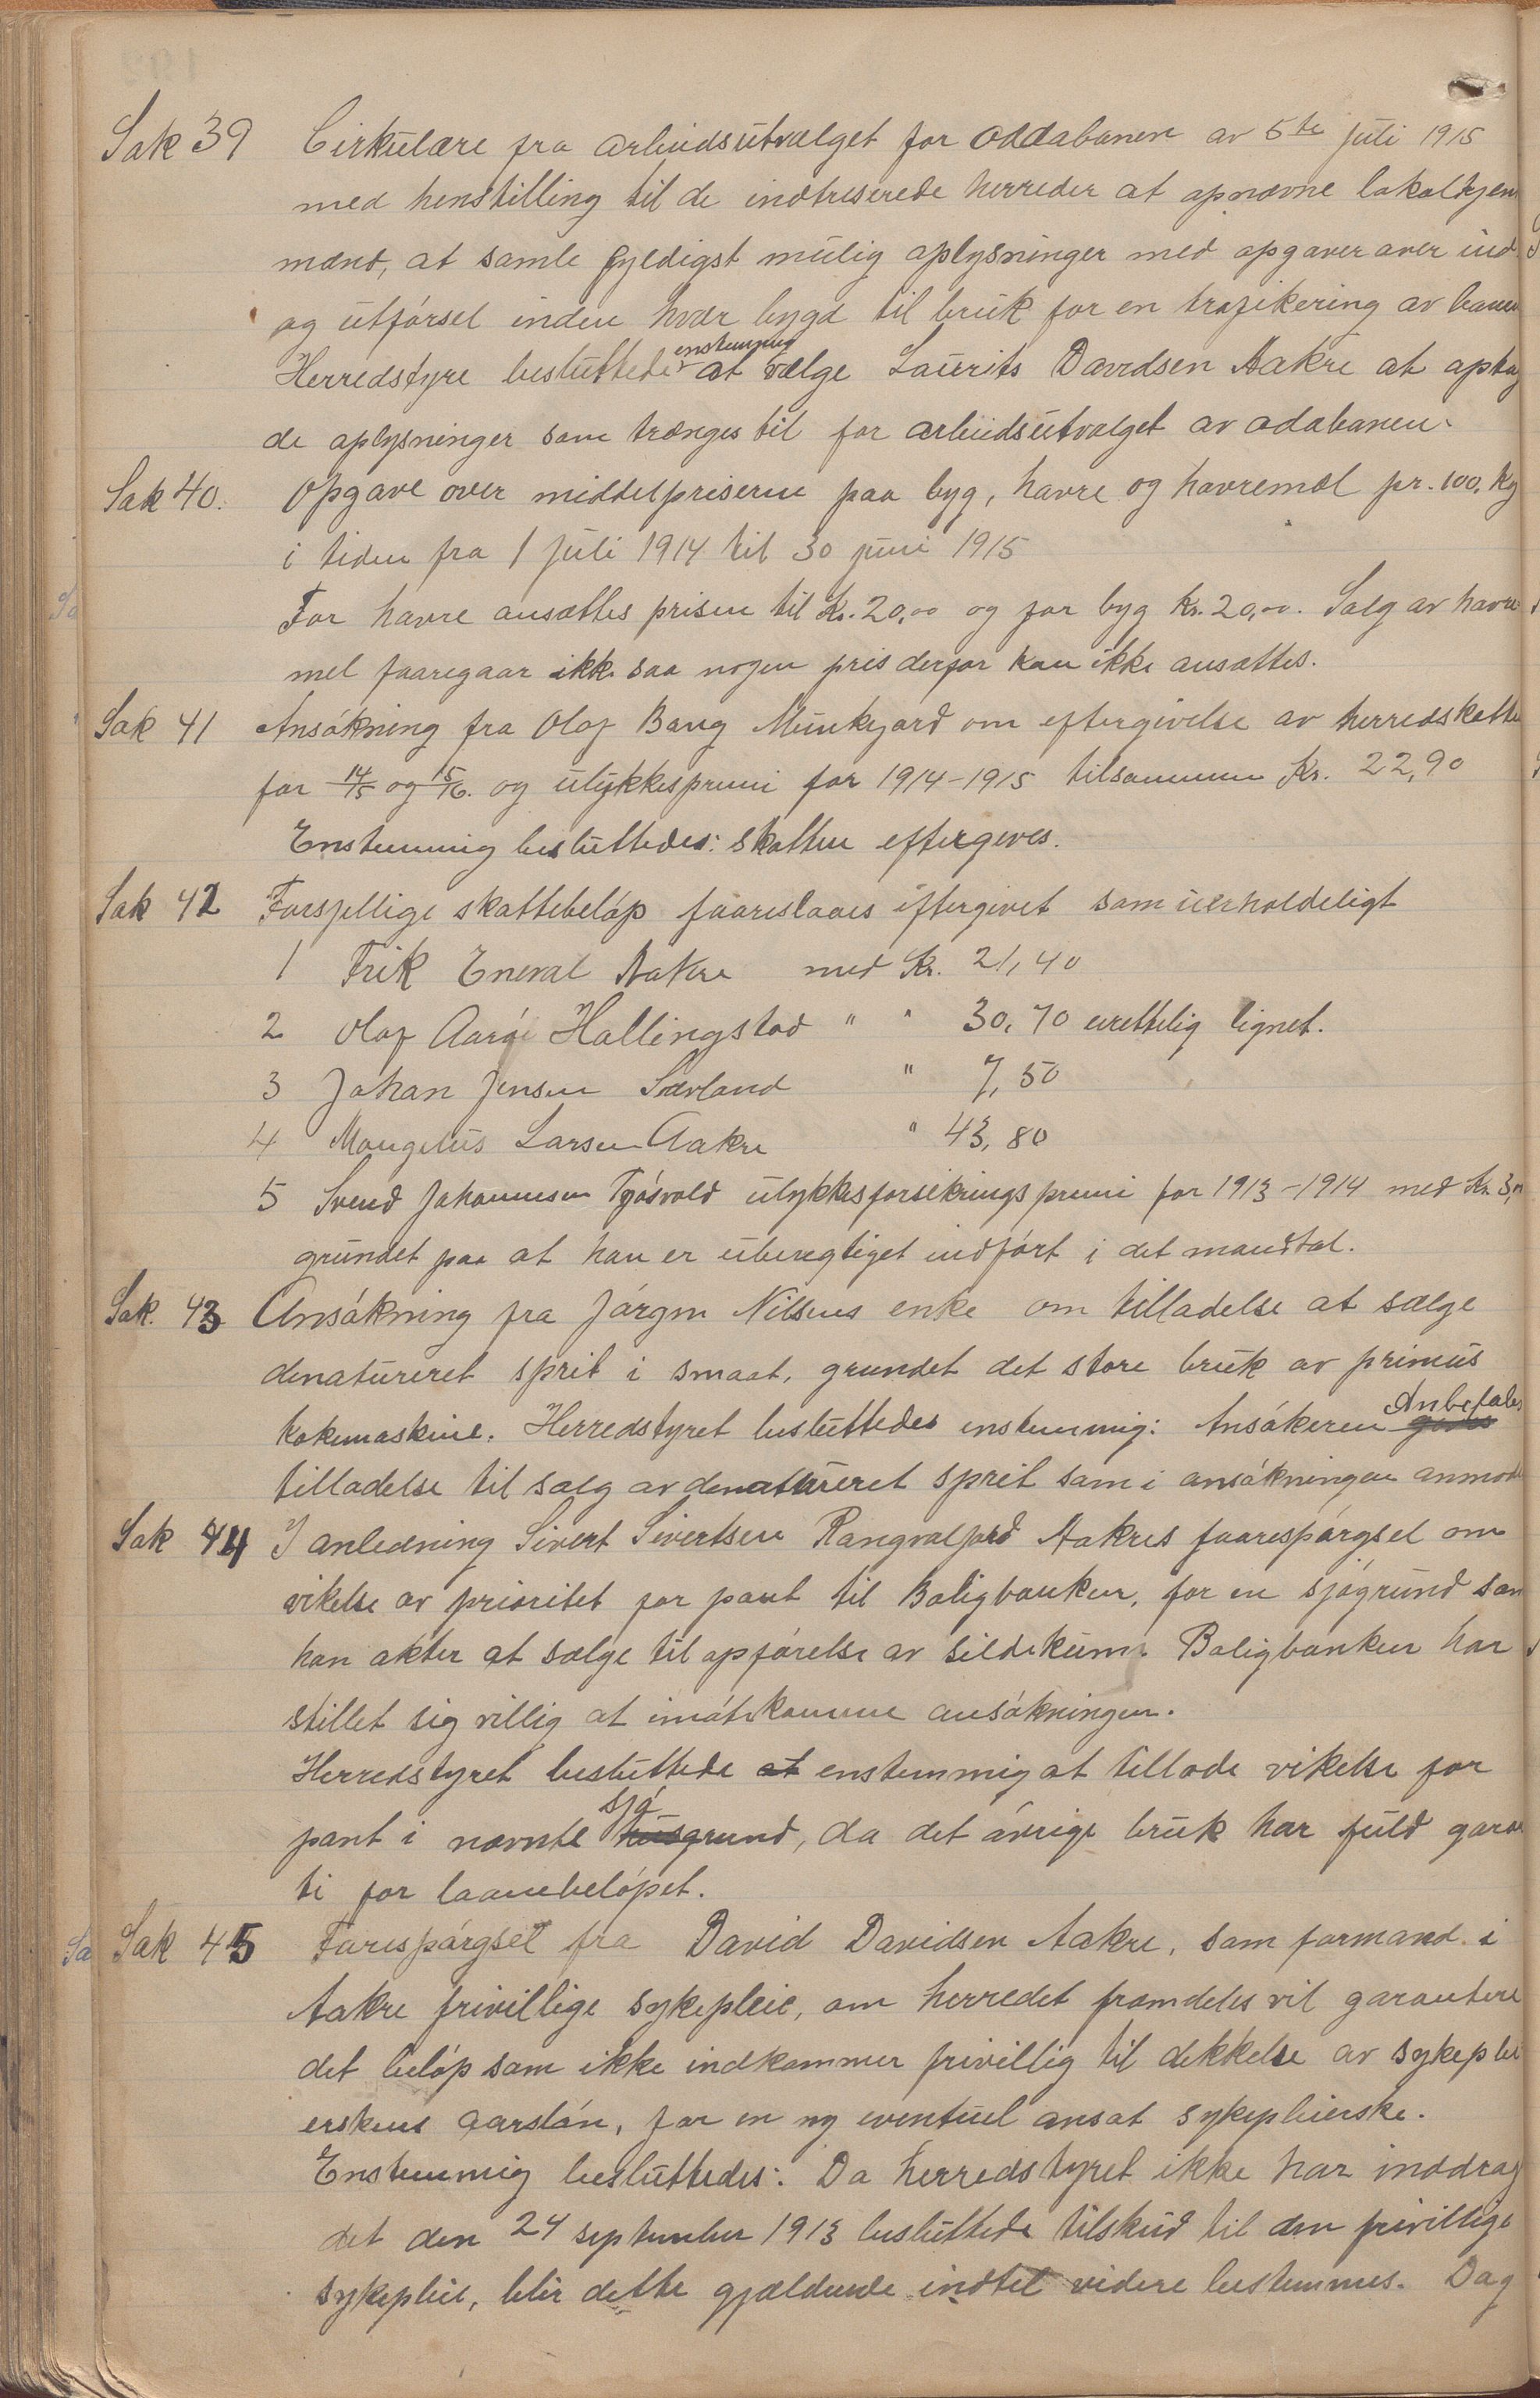 Sak 39 Cirkulære fra arbeidsutvalget for Oddabanen av 5te juli 1915
med henstilling til de indtreserede herreder at opnævne lokalkjen
mænd, at samle fyldigst mulig oplysninger med opgaver over ind
og utførsel inden hvær bygd til bruk for en trafikering av banen
Herredstyre besluttede enstemmig at vælge Laurits Davidsen Aakre at opta
de oplysninger som trænges til for arbeidsutvalget av odabanen.
Sak 40. Opgave over middelpriserne paa byg, havre og havremæl pr. 100. kg
i tiden fra 1 juli 1914 til 30 juni 1915
For havre ansættes prisen til Kr. 20,00 og for byg Kr. 20,00. Salg av havre
mel faaregaar ikke saa nogen pris derfor kan ikke ansættes.
Sak 41 Ansøkning fra Olaf Bang Munkejord om eftergivelse av herredskatte
for 14/15 og 15/16. og ulykkespremi for 1914-1915 tilsammen Kr. 22,90
Enstemmig besluttedes: skatten eftergives.
Sak 42 Forsjellige skattebeløp faareslaaes eftergivet som uerholdeligt
1 Erik Eneval Aakre med Kr. 21,40
2 Olaf Aarøi Hallingstad " " 30,70 urettelig lignet.
3 Johan Jensen Sævland " 7,50
4 Mangelus Larsen Aakre " 43,80
5 Svend Johannesen Tjøsvold ulykkesforsikringspremi for 1913-1914 med Kr. 3,
grundet paa at han er uberegtiget indført i det mandtal.
Sak. 43 Ansøkning fra Jørgen Nilsens enke om tilladelse at sælge
denatureret sprit i smaat, grundet det store bruk av primus
kokemaskine. Herredstyret besluttedes enstemmig: Ansøkeren gives Anbefales
tilladelse til salg av denatureret sprit som i ansøkningen anmod
Sak 44 I anledning Sivert Sivertsen Rangvaljord Aakres faarespørgsel om
vikelse av prioritet for pant til Boligbanken, for en sjøgrund som
han akter at sælge til opførelse av sildekum. Boligbanken har
stillet sig villig at imøtekomme ansøkningen.
Herredstyret besluttede at enstemmig at tillade vikelse for
pant i nævnte hus sjøgrund, da det øvrige bruk har fuld garan
ti for laanebeløpet.
Sak 45 Forespørgsel fra David Davidsen Aakre, som formand i
Aakre frivillige sykepleie, om herredet framdeles vil garantere
det beløp som ikke indkommer frivillig til dekkelse av sykeplei
erskens aarsløn, for en ny eventuel ansat sykepleierske.
Enstemmig besluttedes: Da herredstyret ikke har inddrag
det den 24 september 1913 besluttede tilskud til den frivillige
sykepleie, blir dette gjældende indtil videre bestemmes. Dag